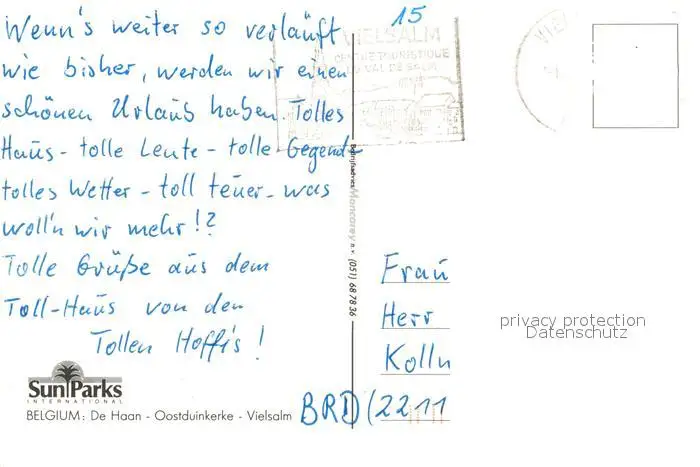 15
Wenn's weiter so verläuft
wie bisher, werden wir einen
schönen Urlaub haben. Tolles
Haus - tolle Leute - tolle Gegend -
tolles Wetter - toll teuer - was
woll'n wir mehr!?
Tolle Grüße aus dem
Toll-Haus von den
Tollen Hoffi's!
VIELSALM
CENTRE TOURISTIQUE
DU VAL DE SALM
(051) 68 78 36
Frau
Herr
Kolln
BRD (2211
privacy protection
Datenschutz
SunParks
INTERNATIONAL
BELGIUM: De Haan - Oostduinkerke - Vielsalm